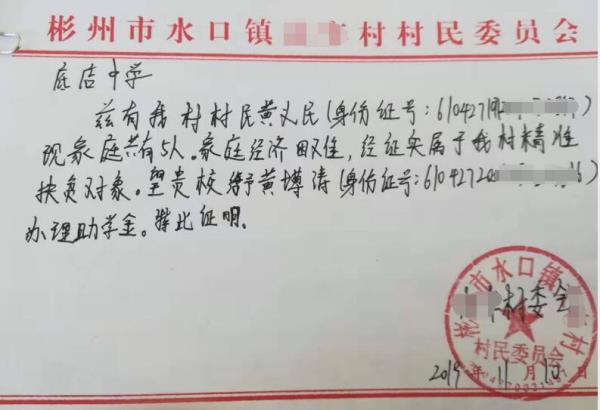 彬州市水口镇 村村民委员会
底店中学
兹有我村村民黄义民(身份证号:6104271
现家庭共有5人。家庭经济困难,经证实属于我村精准
扶贫对象。望贵校给予黄博涛(身份证号:6104272
办理助学金。特此证明。
村委会
彬州市水口镇 村
村民委员会
2019年11月10日